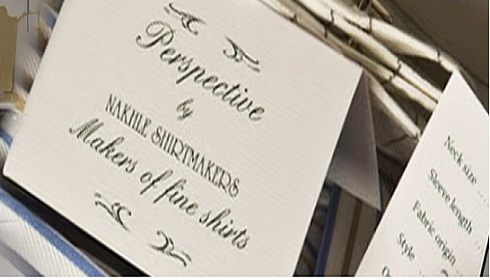 Perspective
by
NAKHLE SHIRTMAKERS
Makers of fine shirts
Neck size
Sleeve length
Fabric origin
Style